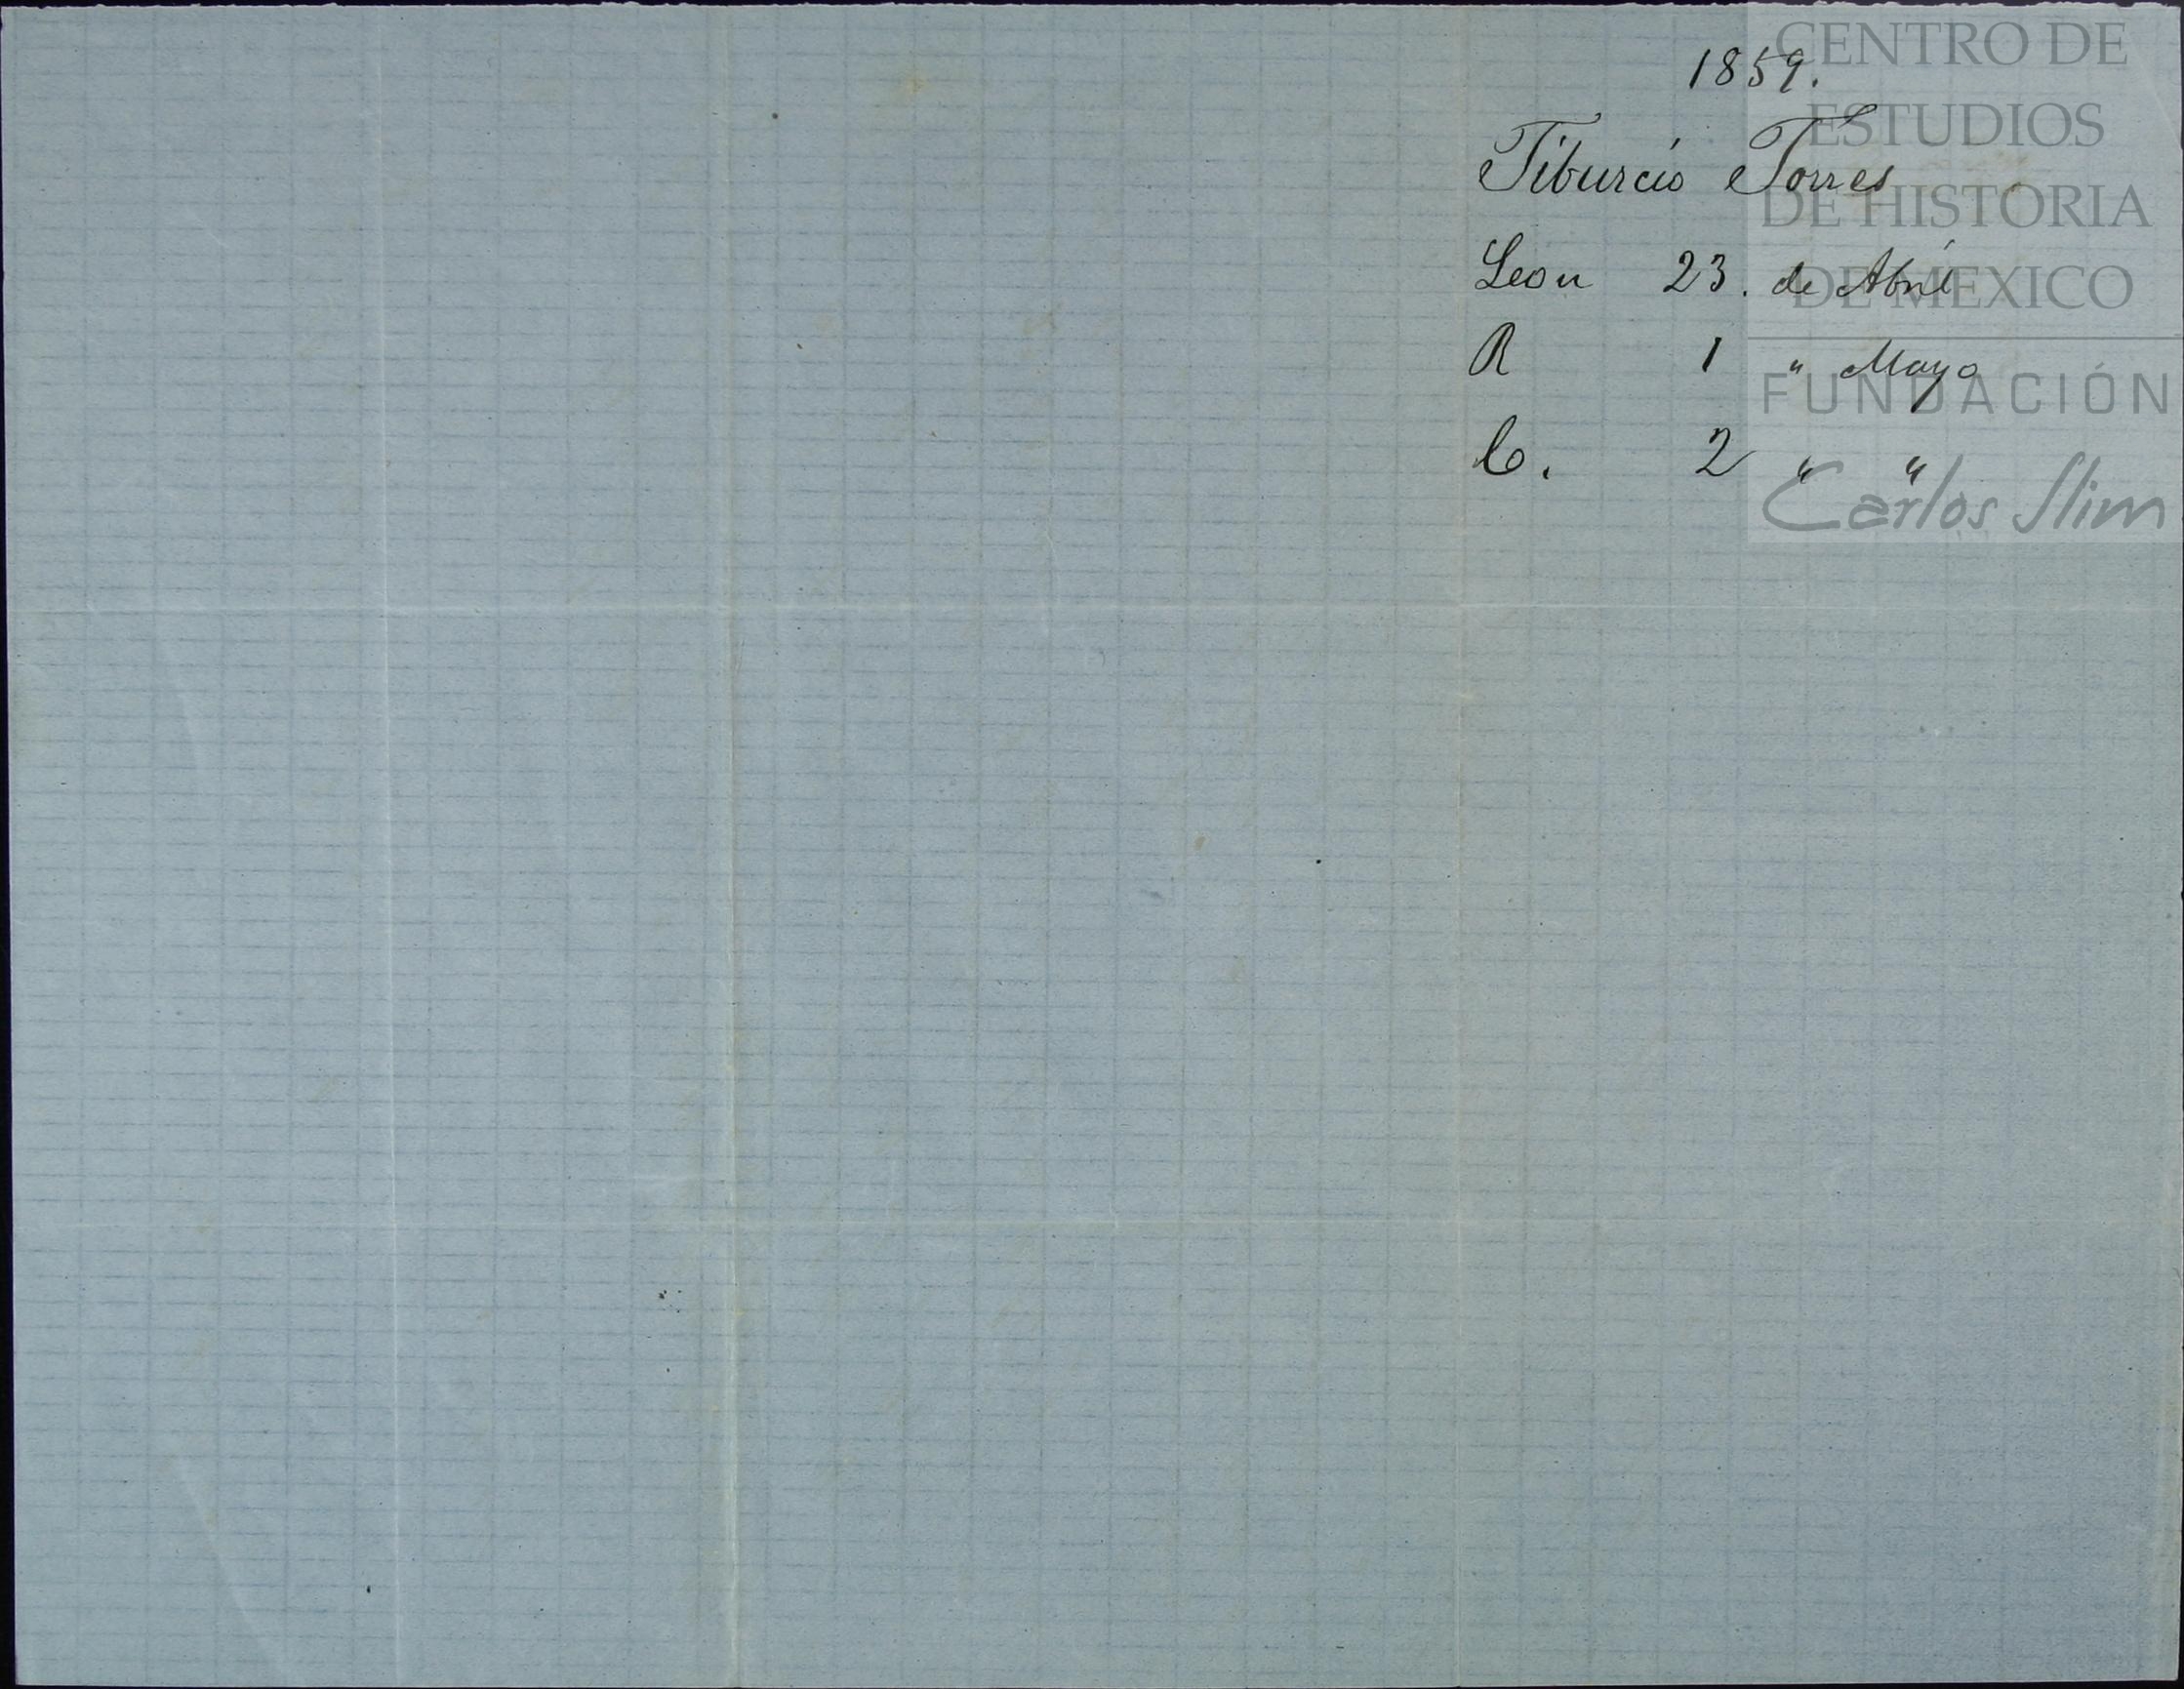 1859.
Tiburcio Torres
Leon 23. de Abril
R 1 " Mayo
C. 2 " "
CENTRO DE
ESTUDIOS
DE HISTORIA
DE MEXICO
FUNDACIÓN
Carlos Slim